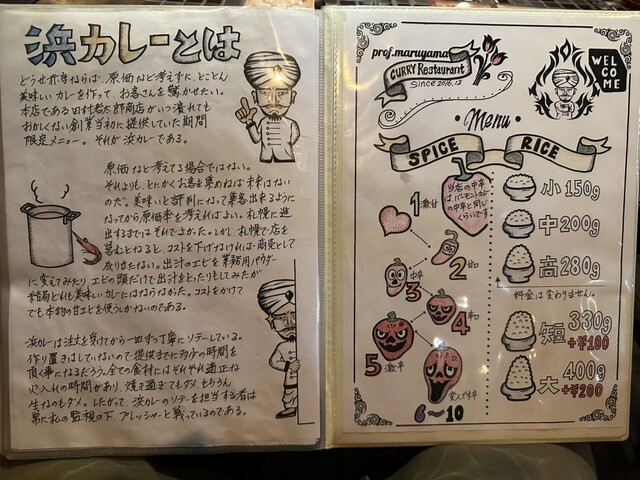 浜カレーとは
どうせ赤字ならば、原価など考えずに、とことん
美味しいカレーを作って、お客さんを驚かせたい。
本店である田村悠太郎商店がいつ潰れても
おかしくない創業当初に提供していた期間
限定メニュー。それが浜カレーである。
原価など考えてる場合ではない。
それよりも、とにかくお客を集めねば未来はない
のだ。美味いと評判になって集客出来るように
なってから原価率を考えればよい。札幌に進
出するまではそれでよかった。しかし、札幌で店を
営むとなると、コストを下げなければ商売として
成り立たない。出汁のエビを業務用パウダー
に変えてみたり、エビの頭だけで出汁をとったりもしてみたが
結局どれも美味しいカレーにはならなかった。コストをかけて
でも本物の甘エビを使うしかないのである。
浜カレーは注文を受けてから一皿ずつ丁寧にソテーしている。
作り置きはしていないので提供までに多少の時間を
頂く事になるだろう。全ての食材にはそれぞれ適正な
火入れの時間があり、焼き過ぎてもダメ、もちろん
生なのもダメ。したがって、浜カレーのソテーを担当する者は
常に私の監視の下、プレッシャーと戦っているのである。
prof.maruyama
CURRY Restaurant
Since 2016.12
WELCOME
Menu
SPICE RICE
1 激甘
当店の中辛
はバーモントカレー
の中辛と同じ
くらいです
2 甘
3 中辛
4 辛
5 激辛
6〜10
小 150g
中 200g
高 280g
料金は変わりません
短 330g
+¥100
大 400g
+¥200